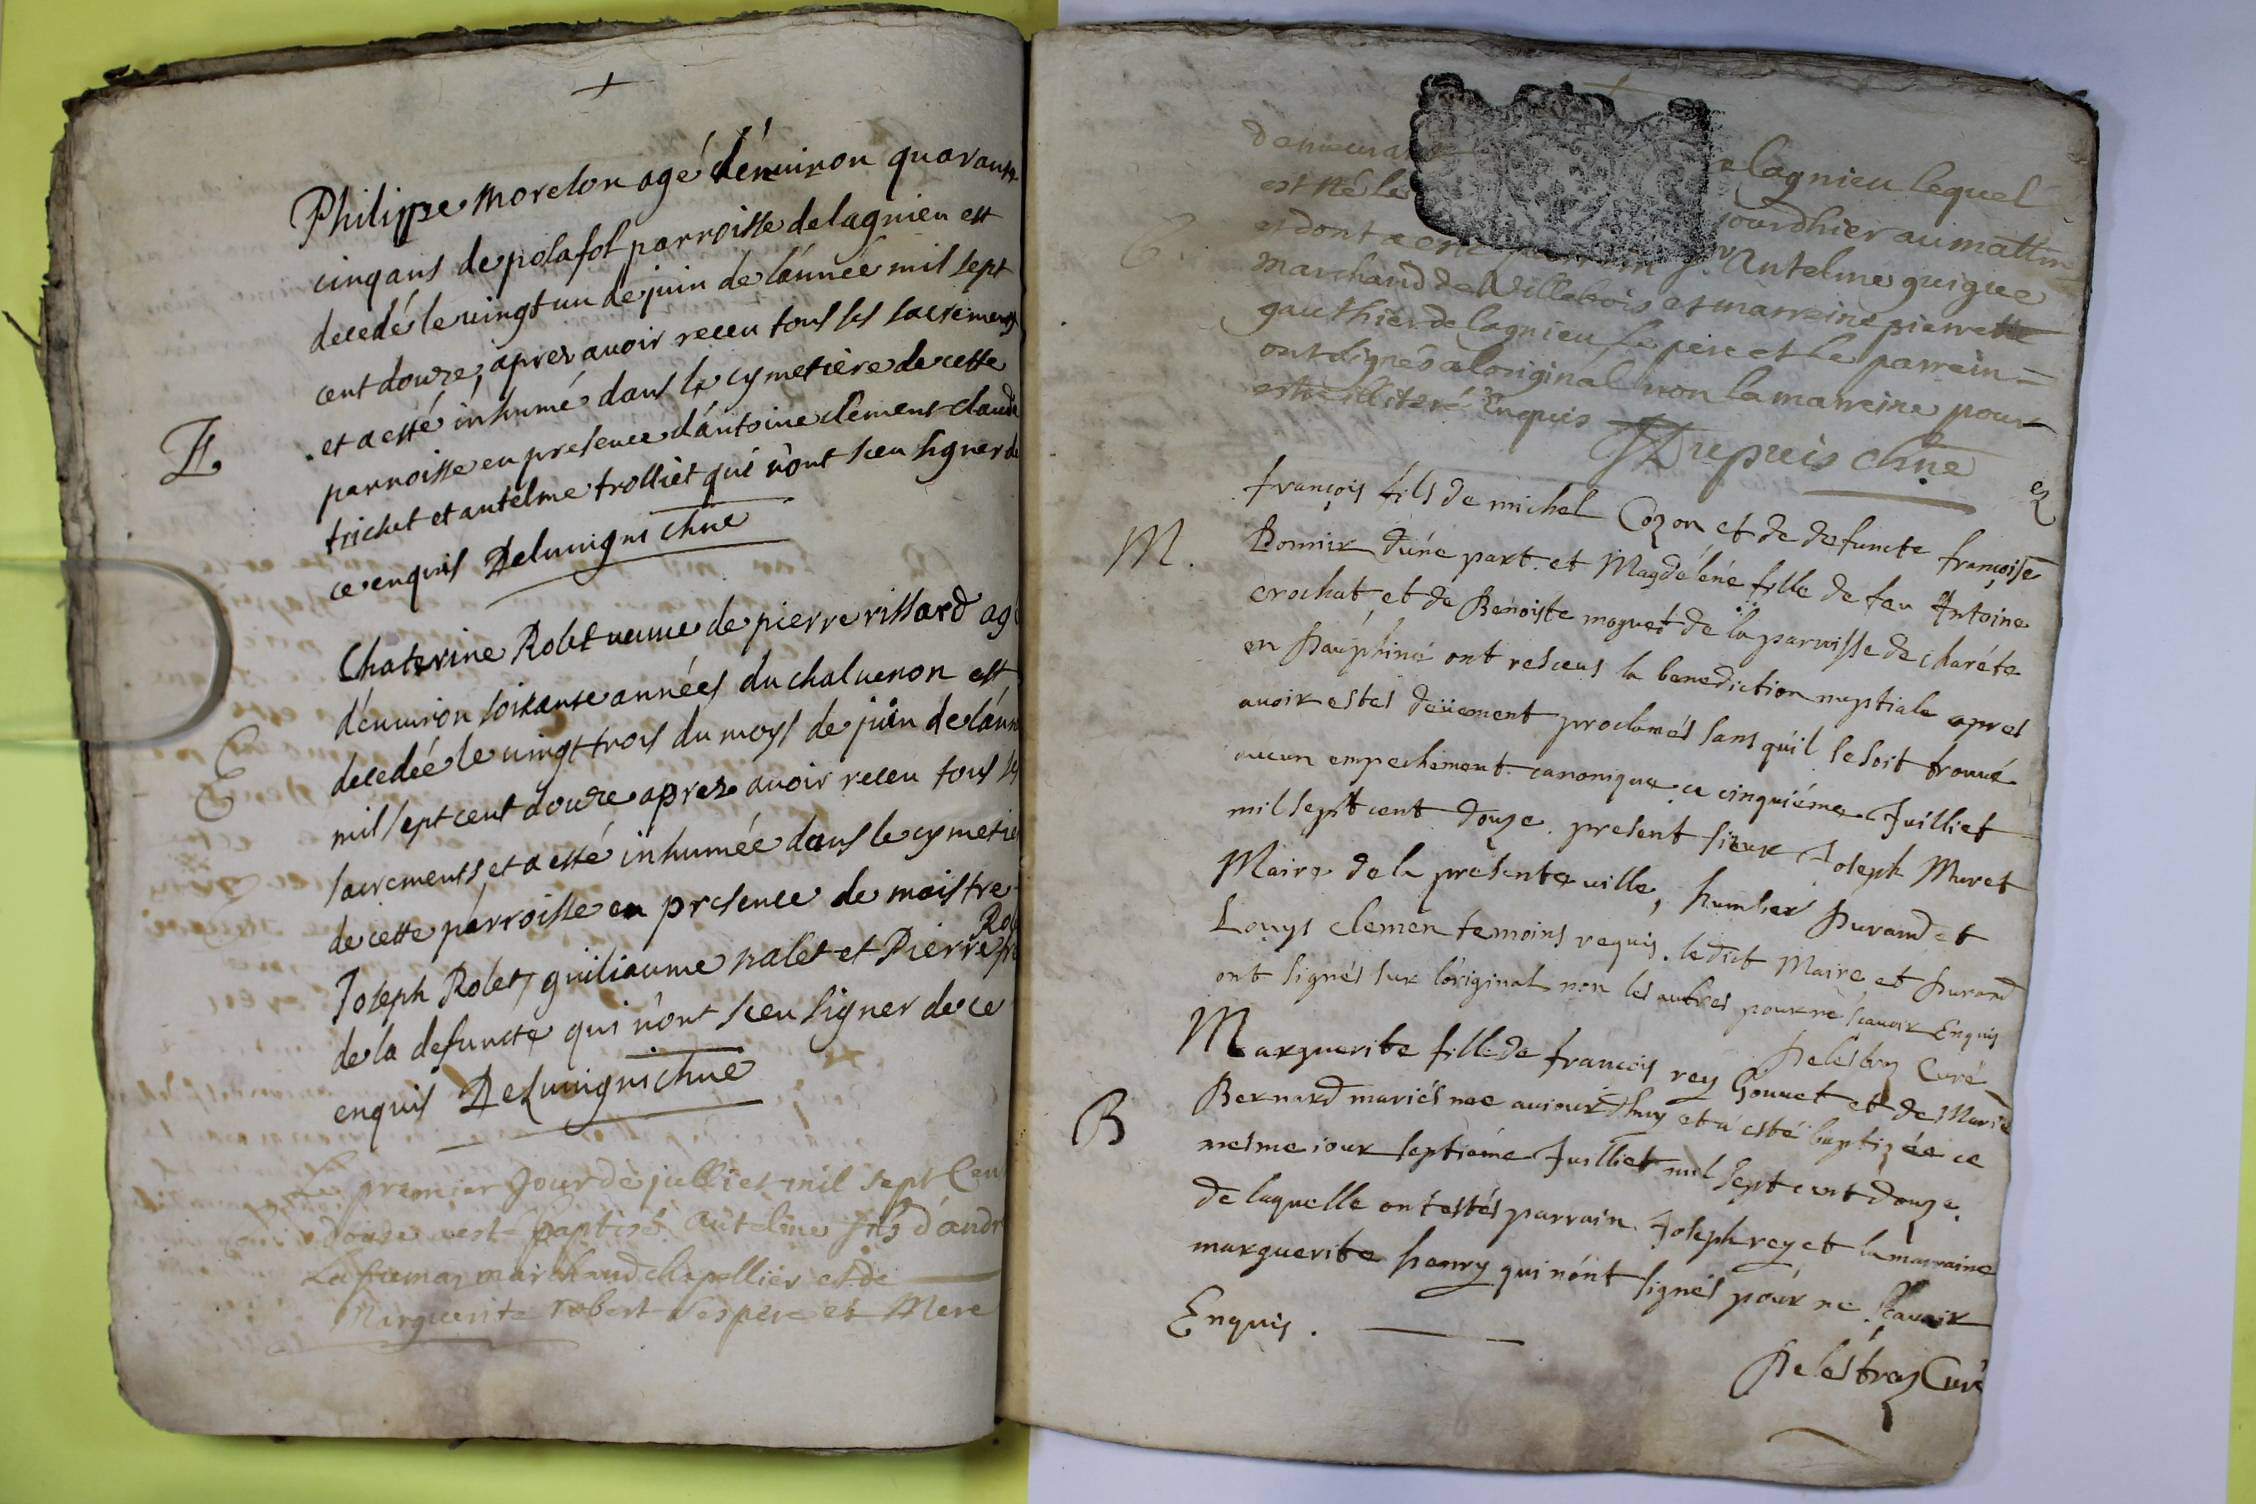 Philippe morelon agé dénuiron quarante
cinq ans de polafol parroisse de lagnieu est
decedé le vingt un de juin de lánnée mil sept
cent douze, aprez auoir receu tous les sacrements
et a esté inhumé dans le cymetiere de cette
E parroisse en presence dántoine clement claude
trichet et antelme trolliet qui n'ont sceu signer de
ce enquis Delunigni chne
Chaterine Robet veuue de pierre rissard ag
dénuiron soixante années du chaluenon est
decedée le vingt trois du moys de juin de lánn
E mil sept cent douze aprez auoir receu tous les
sacrements et a esté inhumée dans le cymetie
de cette parroisse en presence de maistre
Joseph Robet, guiliaume nalet et Pierre
de la defuncte qui n'ont sceu signer de ce
enquis Delunigni chne
Le premier Jour de julliet mil sept Cen
douze a esté baptisé Antelme fils d'andr
marchand chapellier et de
Marguerite robert ses pere et Mere
demeurant lagnieu lequel
est né le jourdhier au mattin
et dont a esté Antelme guigue
marchand de Villebois et marreine pierrette
gauthier de lagnieu le pere et le parrein
ont signés a loriginal non la marreine pour
estre illiteré Enquis Dupuis chne
françois fils de michel Cozon et de defuncte françoise
M. Bonnir d'úne part. et Magdeléne fille de feu Antoine
crochat et de Benoiste moguet de la paroisse de charéte
en Dauphiné ont resceus la benediction nuptiale apres
auoir estes deüement proclamés sans qu'il se soit trouué
aucun empechement canonique ce cinquiéme Juilliet
mil sept cent douze. present sieur Joseph Muret
Maire de la presente uille, humber Durand et
Louys clemen temoins requis. ledict Maire et Durand
ont signés sur l'original non les autres pour ne scauoir Enquis
Delestra Curé
Marguerite fille de francois rey Gouuet et de Marie
B Bernard mariés nee aujourd'huy et a esté baptizée ce
mesme iour septiéme Juilliet mil sept cent douze.
de laquelle ont estés parrain Joseph rey et la marraine
marguerite henry qui n'ont signés pour ne scauoir
Enquis.
Delestra Curé